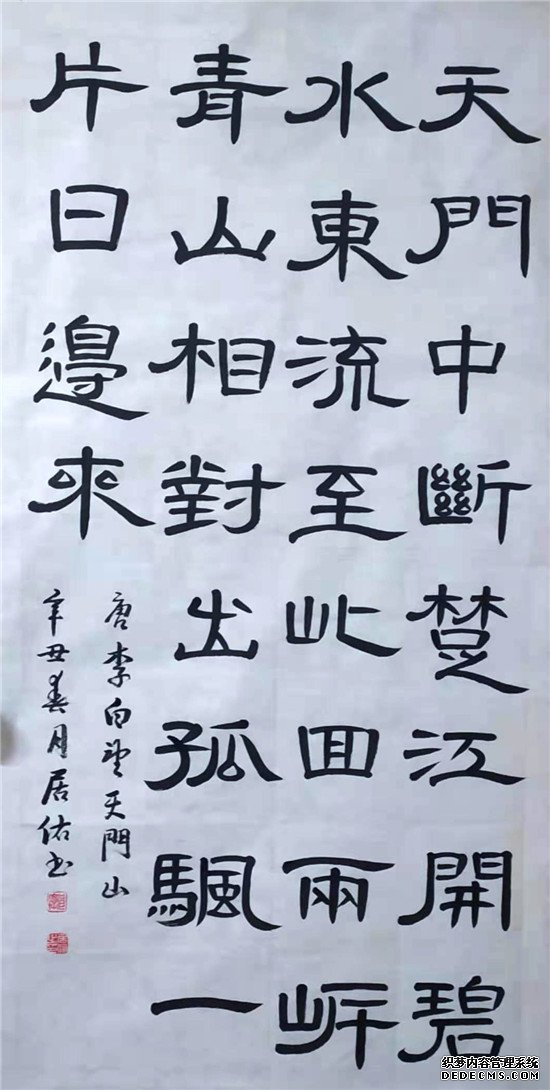 天門中斷楚江開碧
水東流至此回兩岸
青山相對出孤颿一
片日邊來
唐李白望天門山
辛丑春月居佑书
织梦内容管理系统
DEDECMS.COM